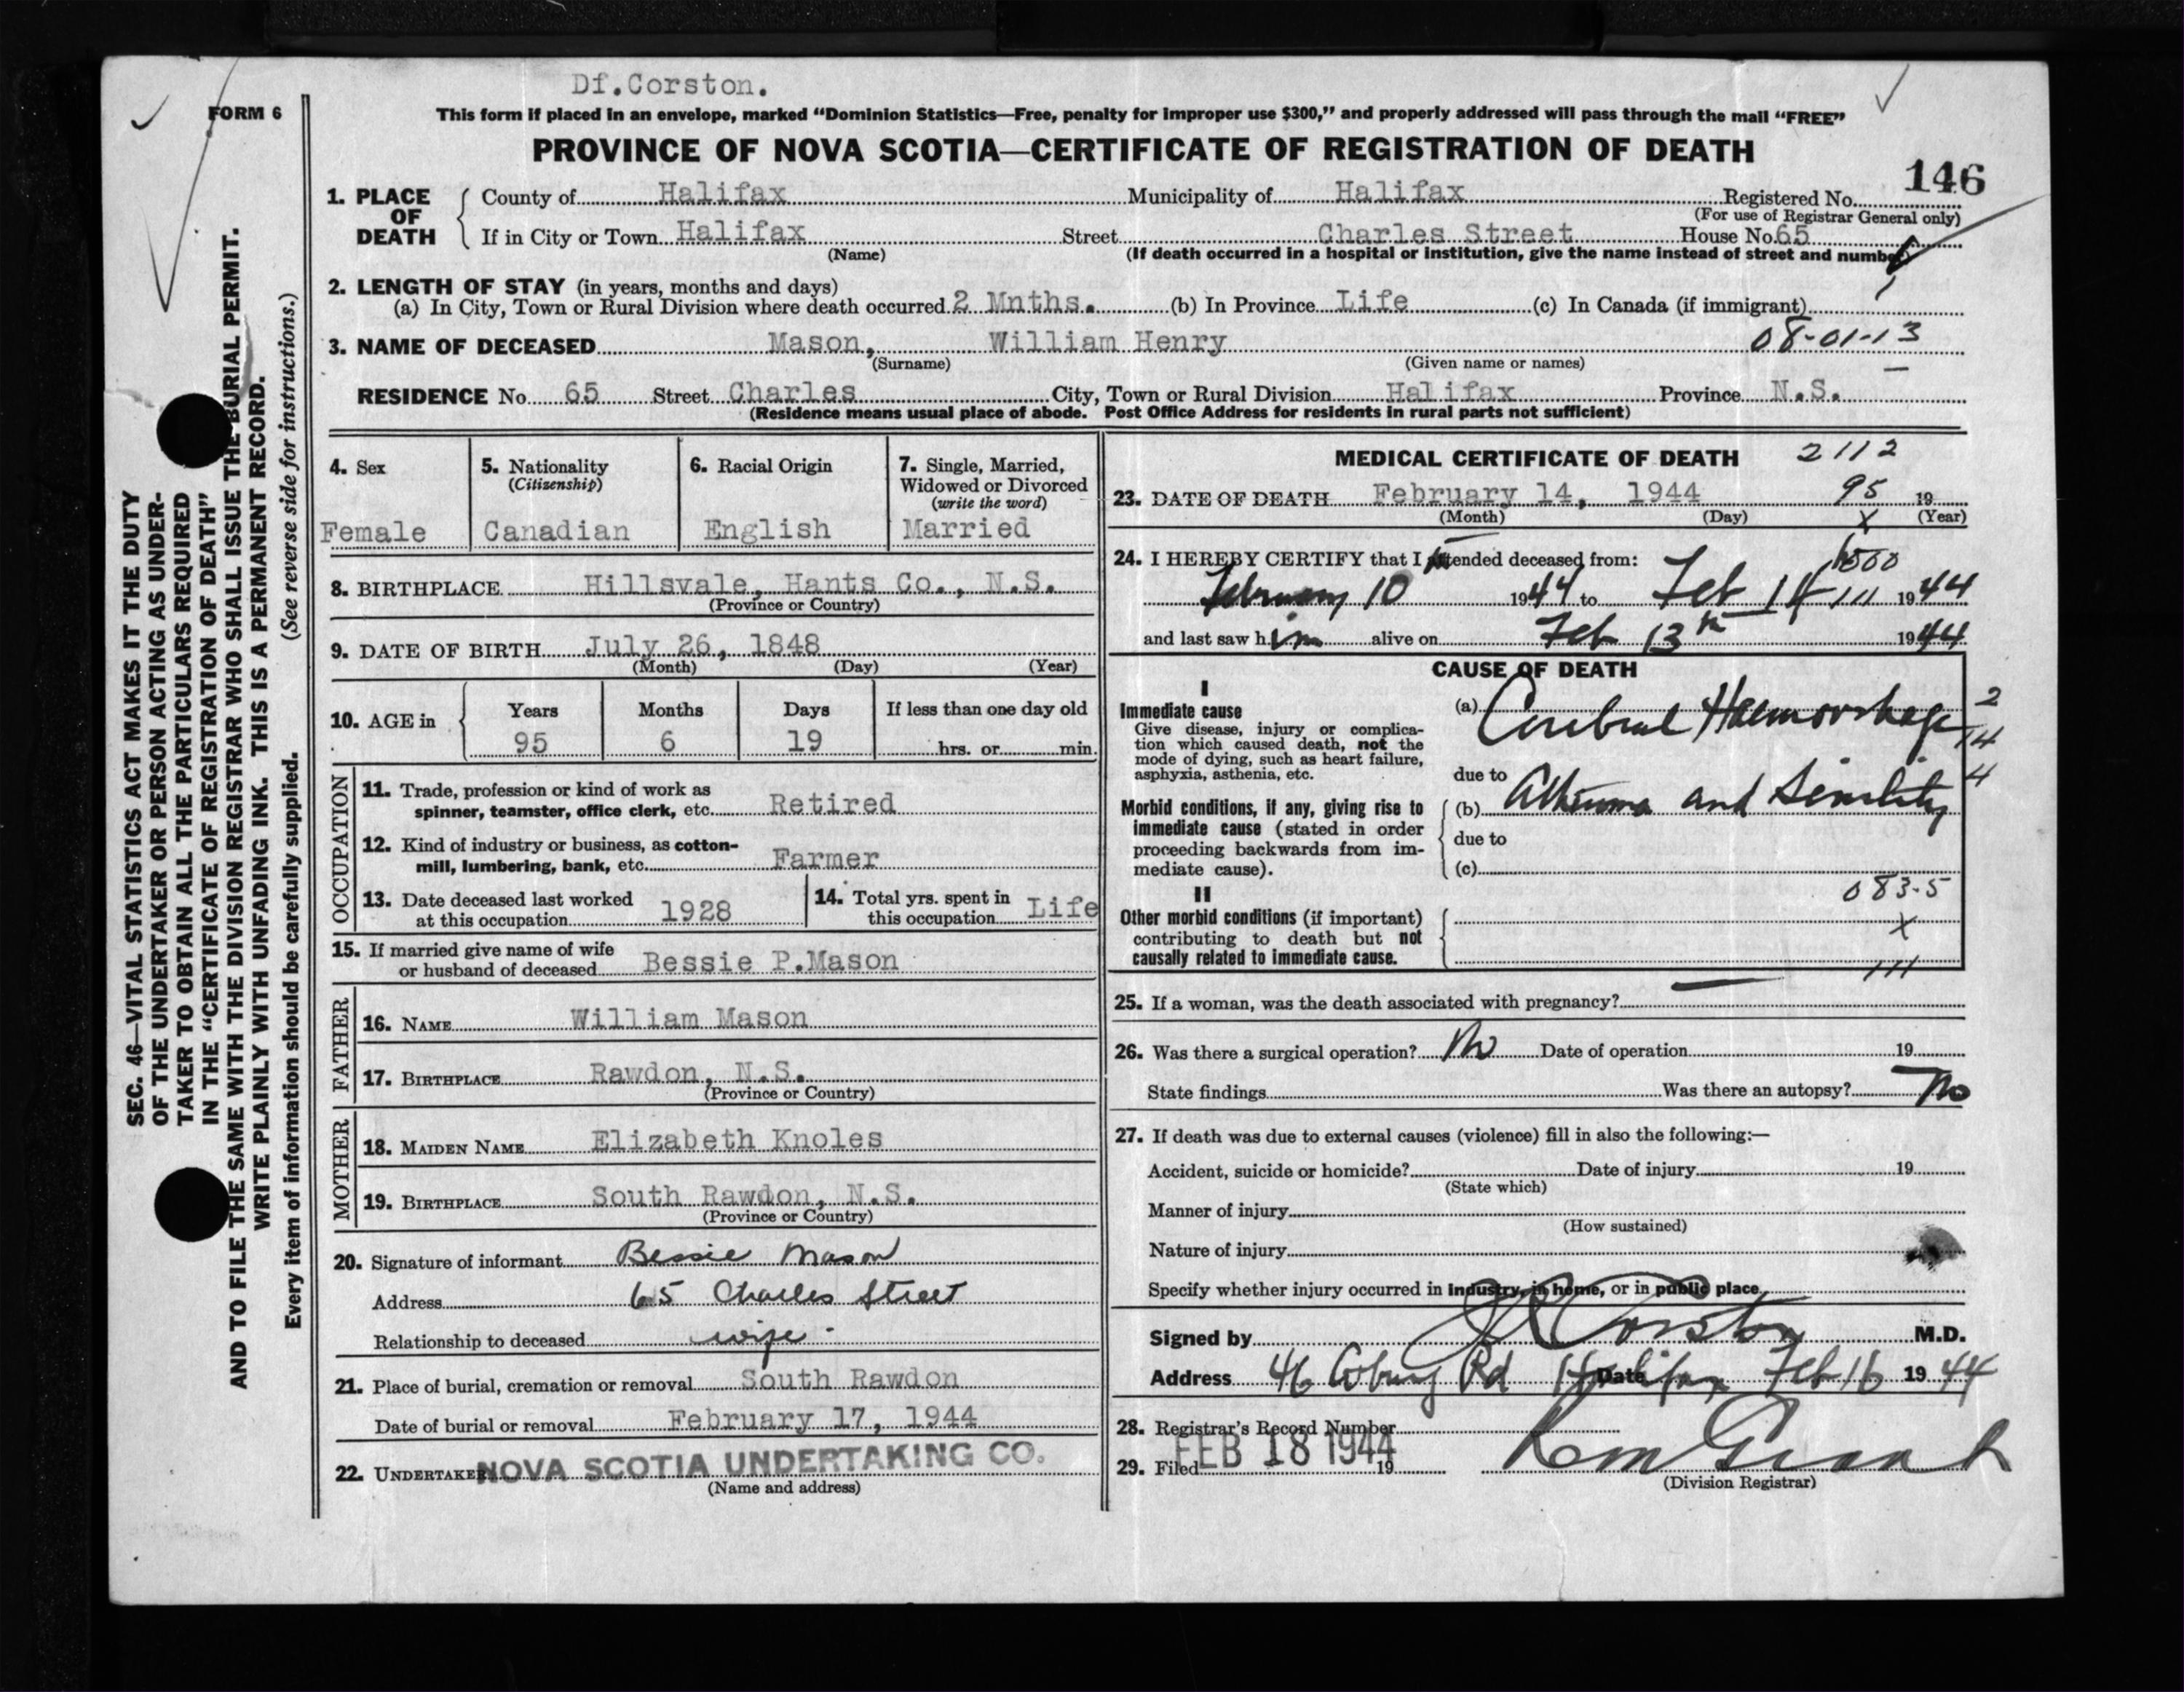 Df.Corston.
FORM 6
This form if placed in an envelope, marked “Dominion Statistics—Free, penalty for improper use $300,” and properly addressed will pass through the mail “FREE”
PROVINCE OF NOVA SCOTIA—CERTIFICATE OF REGISTRATION OF DEATH
146
1. PLACE OF DEATH
County of Halifax Municipality of Halifax Registered No.
(For use of Registrar General only)
If in City or Town Halifax Street Charles Street House No. 65
(Name) (If death occurred in a hospital or institution, give the name instead of street and number)
2. LENGTH OF STAY (in years, months and days)
(a) In City, Town or Rural Division where death occurred 2 Mnths. (b) In Province Life (c) In Canada (if immigrant)
3. NAME OF DECEASED Mason, William Henry 08-01-13
(Surname) (Given name or names)
RESIDENCE No. 65 Street Charles City, Town or Rural Division Halifax Province N.S.
(Residence means usual place of abode. Post Office Address for residents in rural parts not sufficient)
4. Sex
Female
5. Nationality
(Citizenship)
Canadian
6. Racial Origin
English
7. Single, Married,
Widowed or Divorced
(write the word)
Married
8. BIRTHPLACE Hillsvale, Hants Co., N.S.
(Province or Country)
9. DATE OF BIRTH July 26, 1848
(Month) (Day) (Year)
10. AGE in
Years Months Days If less than one day old
95 6 19 hrs. or min.
OCCUPATION
11. Trade, profession or kind of work as
spinner, teamster, office clerk, etc. Retired
12. Kind of industry or business, as cotton-
mill, lumbering, bank, etc. Farmer
13. Date deceased last worked
at this occupation 1928
14. Total yrs. spent in
this occupation Life
15. If married give name of wife
or husband of deceased Bessie P.Mason
FATHER
16. NAME William Mason
17. BIRTHPLACE Rawdon, N.S.
(Province or Country)
MOTHER
18. MAIDEN NAME Elizabeth Knoles
19. BIRTHPLACE South Rawdon, N.S.
(Province or Country)
20. Signature of informant Bessie Mason
Address 65 Charles Street
Relationship to deceased wife
21. Place of burial, cremation or removal South Rawdon
Date of burial or removal February 17, 1944
22. UNDERTAKER NOVA SCOTIA UNDERTAKING CO.
(Name and address)
MEDICAL CERTIFICATE OF DEATH 2112
23. DATE OF DEATH February 14, 1944 95 19
(Month) (Day) (Year)
24. I HEREBY CERTIFY that I attended deceased from:
February 10 1944 to Feb 14 1944
and last saw him alive on Feb 13th 1944
CAUSE OF DEATH
I
Immediate cause
Give disease, injury or complica-
tion which caused death, not the
mode of dying, such as heart failure,
asphyxia, asthenia, etc.
(a) Cerebral Haemorrhage
due to
Morbid conditions, if any, giving rise to
immediate cause (stated in order
proceeding backwards from im-
mediate cause).
(b) Atheroma and Senility
due to
(c)
083-5
II
Other morbid conditions (if important)
contributing to death but not
causally related to immediate cause.
25. If a woman, was the death associated with pregnancy?
26. Was there a surgical operation? No Date of operation 19
State findings Was there an autopsy? No
27. If death was due to external causes (violence) fill in also the following:—
Accident, suicide or homicide? Date of injury 19
(State which)
Manner of injury
(How sustained)
Nature of injury
Specify whether injury occurred in industry, in home, or in public place
Signed by Corston M.D.
Address 46 Coburg Rd Halifax Date Feb 16 1944
28. Registrar's Record Number
29. Filed FEB 18 1944 19
(Division Registrar)
SEC. 46—VITAL STATISTICS ACT MAKES IT THE DUTY
OF THE UNDERTAKER OR PERSON ACTING AS UNDER-
TAKER TO OBTAIN ALL THE PARTICULARS REQUIRED
IN THE “CERTIFICATE OF REGISTRATION OF DEATH”
AND TO FILE THE SAME WITH THE DIVISION REGISTRAR WHO SHALL ISSUE THE BURIAL PERMIT.
WRITE PLAINLY WITH UNFADING INK. THIS IS A PERMANENT RECORD.
Every item of information should be carefully supplied. (See reverse side for instructions.)